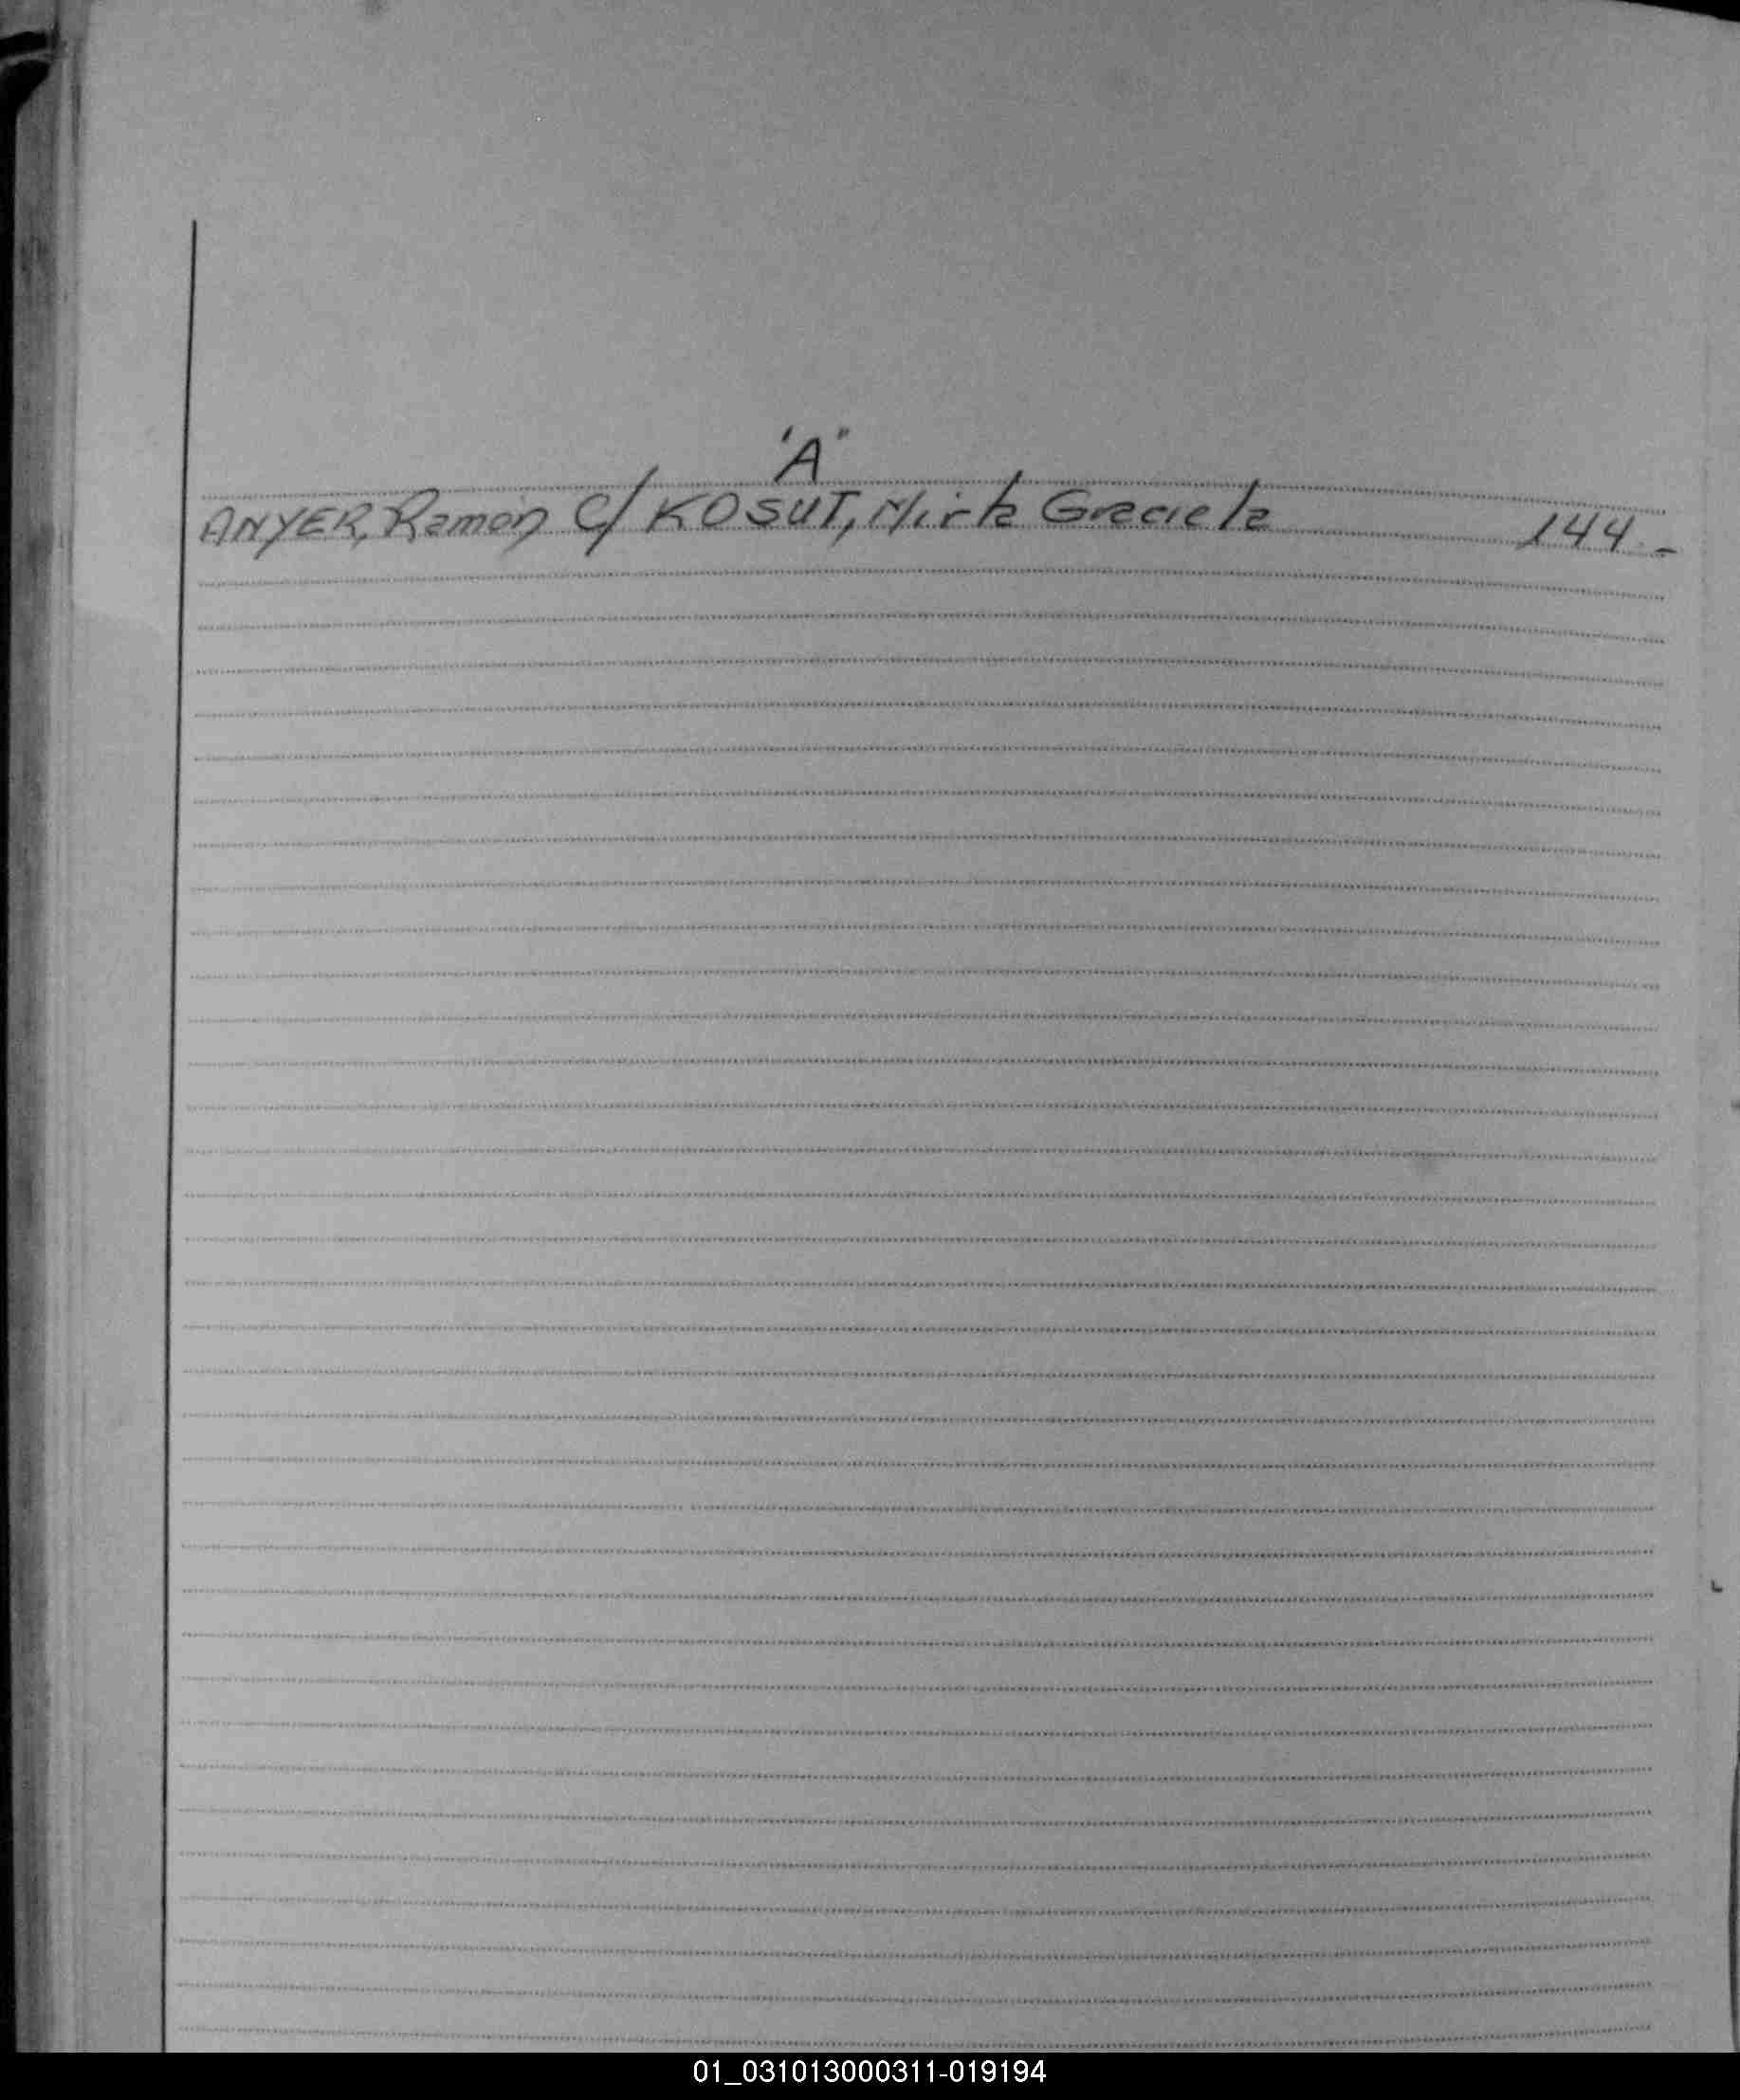 "A"
ANYER, Ramón C/ KOSUT, Mirta Graciela 144.-
01_031013000311-019194